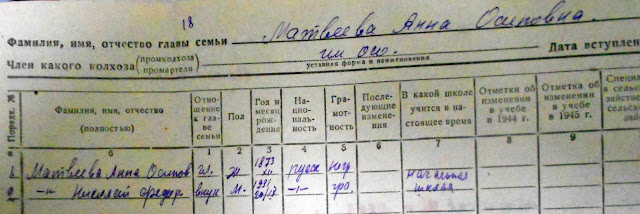 18
Фамилия, имя, отчество главы семьи Матвеева Анна Осиповна.
Член какого колхоза (промколхоза промартели)
уставная форма и наименование
Дата вступлен
№ Порядк.
Фамилия, имя, отчество (полностью)
Отношение к главе семьи
Пол
Год и месяц рождения
Национальность
Грамотность
Последующие изменения
В какой школе учится в настоящее время
Отметки об изменении в учебе в 1944 г.
Отметка об изменении в учебе в 1945 г.
Специ в сельс зяйстве дейст
б 1 2 3 4 5 6 7 8 9
1 Матвеева Анна Осипов гл. ж 1873 XII русск негр
2 -//- Николай Федор. внук м. -//- гра начальная школа